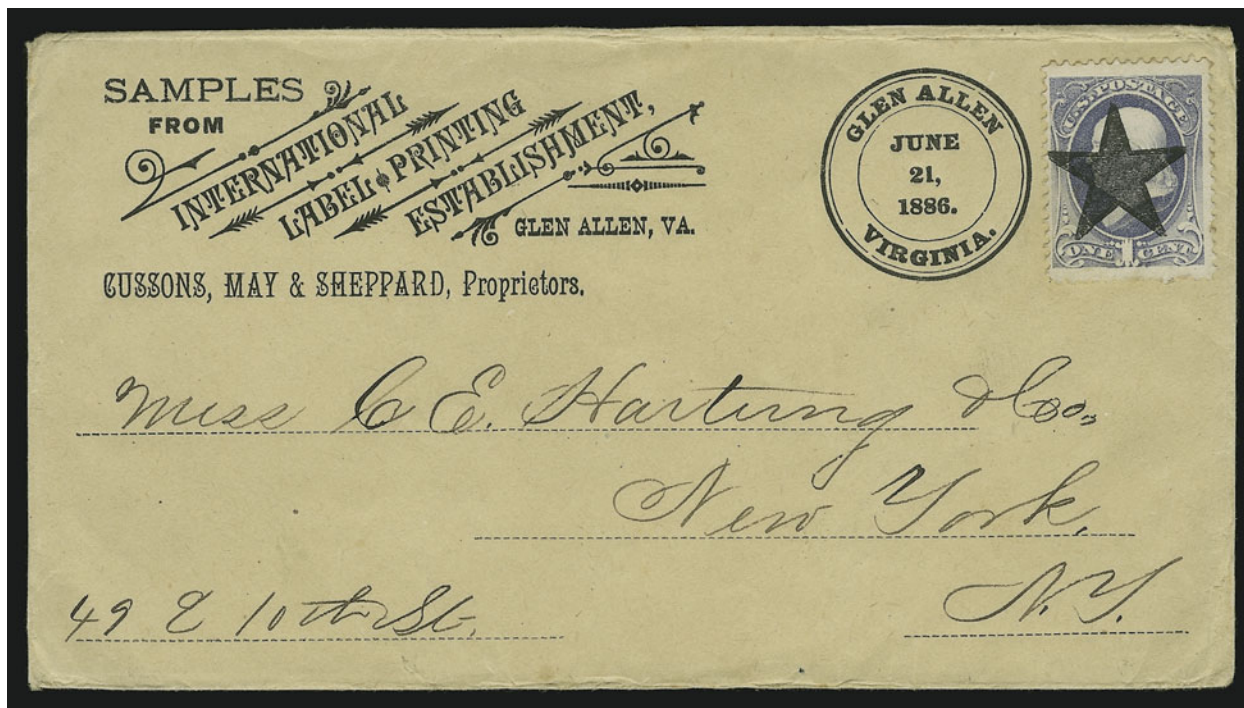 SAMPLES
FROM
INTERNATIONAL
LABEL PRINTING
ESTABLISHMENT,
GLEN ALLEN, VA.
CUSSONS, MAY & SHEPPARD, Proprietors.
GLEN ALLEN
JUNE
21,
1886.
VIRGINIA.
U.S. POSTAGE
ONE 1 CENT
Miss C E. Hartung & Co,
New York,
N.Y.
49 E 10th St.